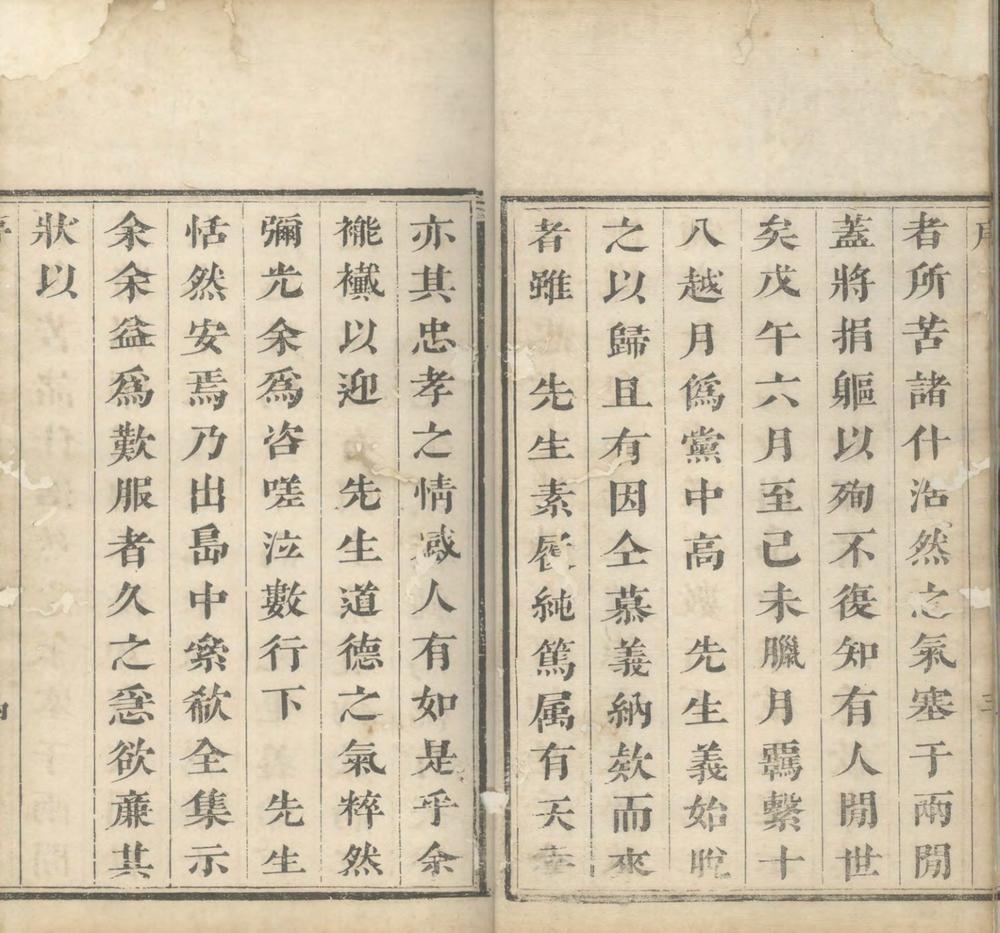 者所苦諸什沿然之氣塞于兩閒
蓋將捐軀以殉不復知有人閒世
矣戊午六月至己未臘月羈繫十
八越月僞黨中高　先生義始脫
之以歸且有因仝慕義納欸而來
者雖　先生素履純篤属有天幸
亦其忠孝之情感人有如是乎余
襹襶以迎　先生道德之氣粹然
彌光余爲咨嗟泣數行下　先生
恬然安焉乃出㠀中縈欷全集示
余余益爲歎服者久之惫欲亷其
狀以